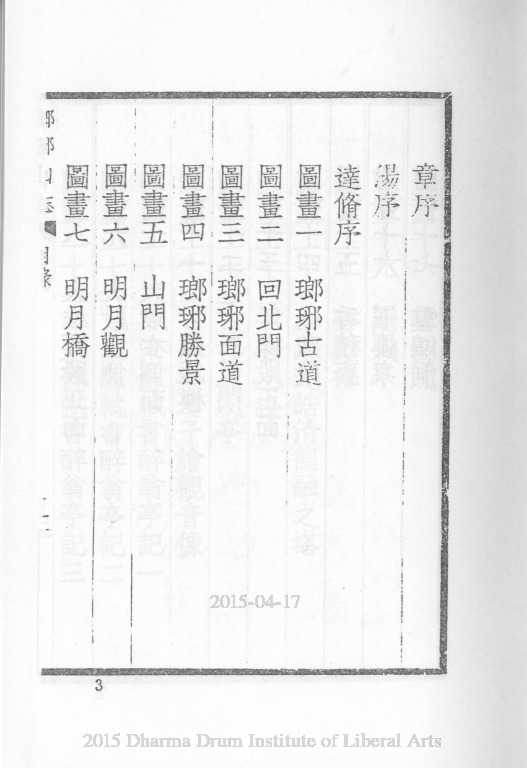 章序
湯序
達脩序
圖畫一 瑯琊古道
圖畫二 回北門
圖畫三 瑯琊面道
圖畫四 瑯琊勝景
圖畫五 山門
圖畫六 明月觀
圖畫七 明月橋
目錄
3
2015-04-17
2015 Dharma Drum Institute of Liberal Arts